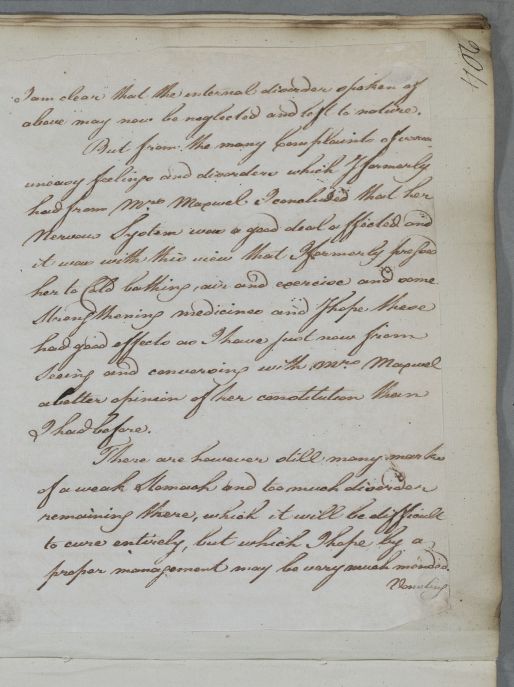 406
I am clear that the internal disorder spoken of
above may now be neglected and left to nature.
But from the many Complaints of
uneasy feelings and disorders which I formerly
had from Mrs Maxwel I concluded that her
Nervous System was a good deal affected and
it was with this view that I formerly
her to Cold bathing air and exercise and some
Strengthening medicines and I hope these
had good effects as I have just now from
Seeing and conversing with Mrs. Maxwel
a better opinion of her constitution than
I had before.
There are however still many marks
of a weak Stomach and too much disorder
remaining there, which it will be difficult
to cure entirely, but which I hope by a
proper management may be very much mended.
Vomiting